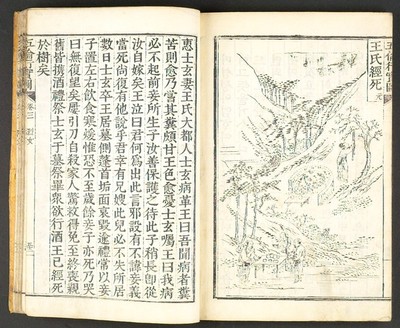 王氏經死 元
惠士玄妻王氏大都人士玄病革王曰吾聞病者糞
苦則愈乃嘗其糞頗甘王色愈憂士玄囑王曰我病
必不起前妾所生子汝善保護之待此子稍長卽從
汝自嫁矣王泣曰君何爲出此言耶設有不諱妾義
當死尙復有他說乎君幸有兄嫂此兒必不失所居
數日士玄卒王居墓側蓬首垢面哀毁逾禮常以妾
子置左右飮食寒煖惟恐不至歲餘妾子亦死乃哭
曰無復望矣屢引刀自殺家人驚救得免至終喪親
舊皆携酒禮祭士玄于墓祭畢衆欲行酒王已經死
於樹矣
卷三